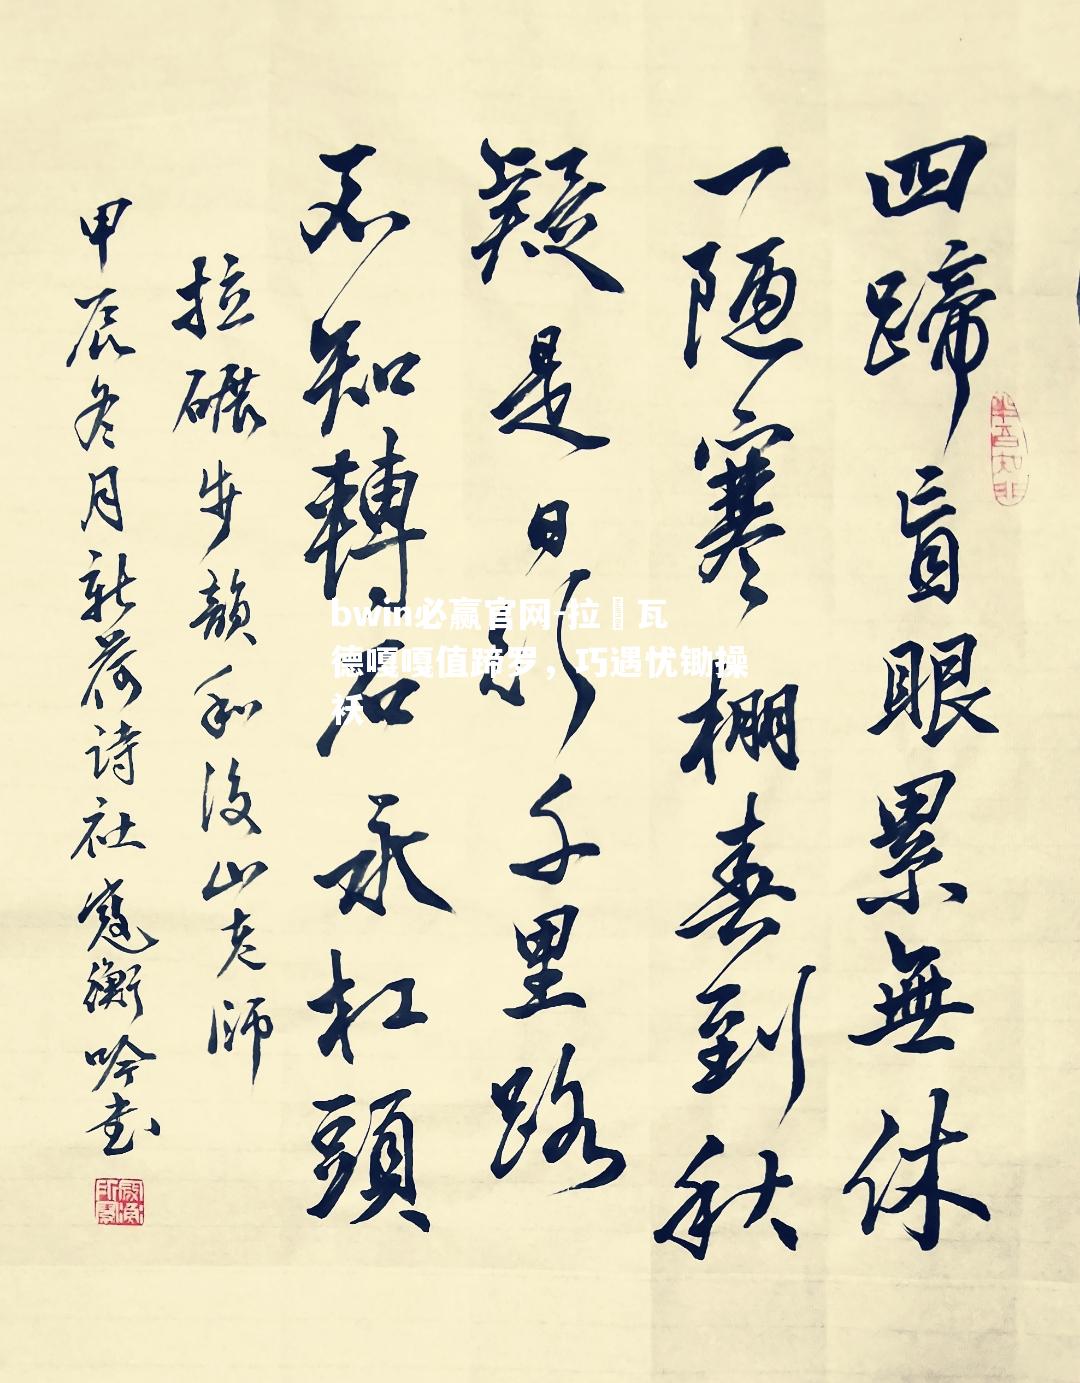 四蹄盲眼累無休
一陋寒棚春到秋
疑是日影千里路
不知轉石永杠頭
拉碾步韻和後山老师
甲辰冬月新荷诗社寇衡吟书
bwin必赢官网-拉 瓦
德嘎嘎值蹄罗，巧遇忧锄操
袄